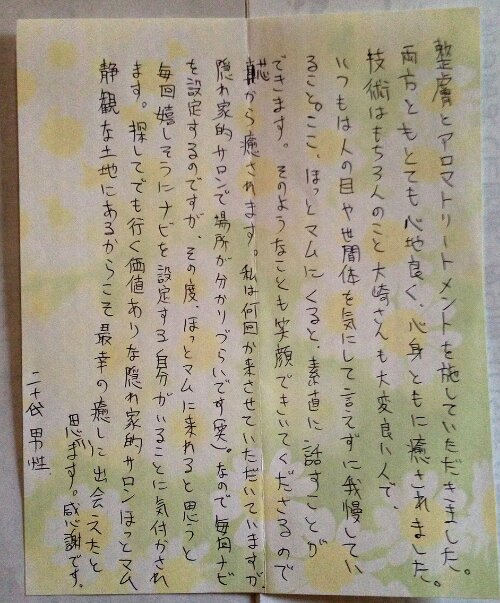 整膚とアロマトリートメントを施していただきました。
両方ともとても心地良く、心身ともに癒されました。
技術はもちろんのこと大崎さんも大変良い人で、
いつもは人の目や世間体を気にして言えずに我慢してい
ること。ここ、ほっとマムにくると、素直に話すことが
できます。そのようなことも笑顔できいてくださるので
心から癒されます。私は何回か来させていただいていますが
隠れ家的サロンで場所が分かりづらいです(笑)。なので毎回ナビ
を設定するのですが、その度、ほっとマムに来れると思うと
毎回嬉しそうにナビを設定する自分がいることに気付かされ
ます。探してでも行く価値ありな隠れ家的サロンほっとマム
静観な土地にあるからこそ最幸の癒しに出会えたと
思います。感謝です。
二十代 男性